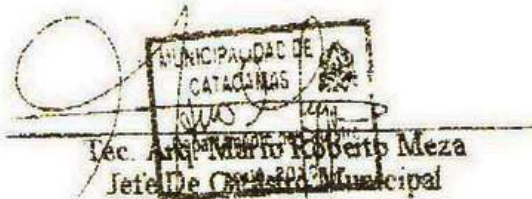 MUNICIPALIDAD DE
CATACAMAS
Tec. Arq. Mario Roberto Meza
Jefe De Catastro Municipal